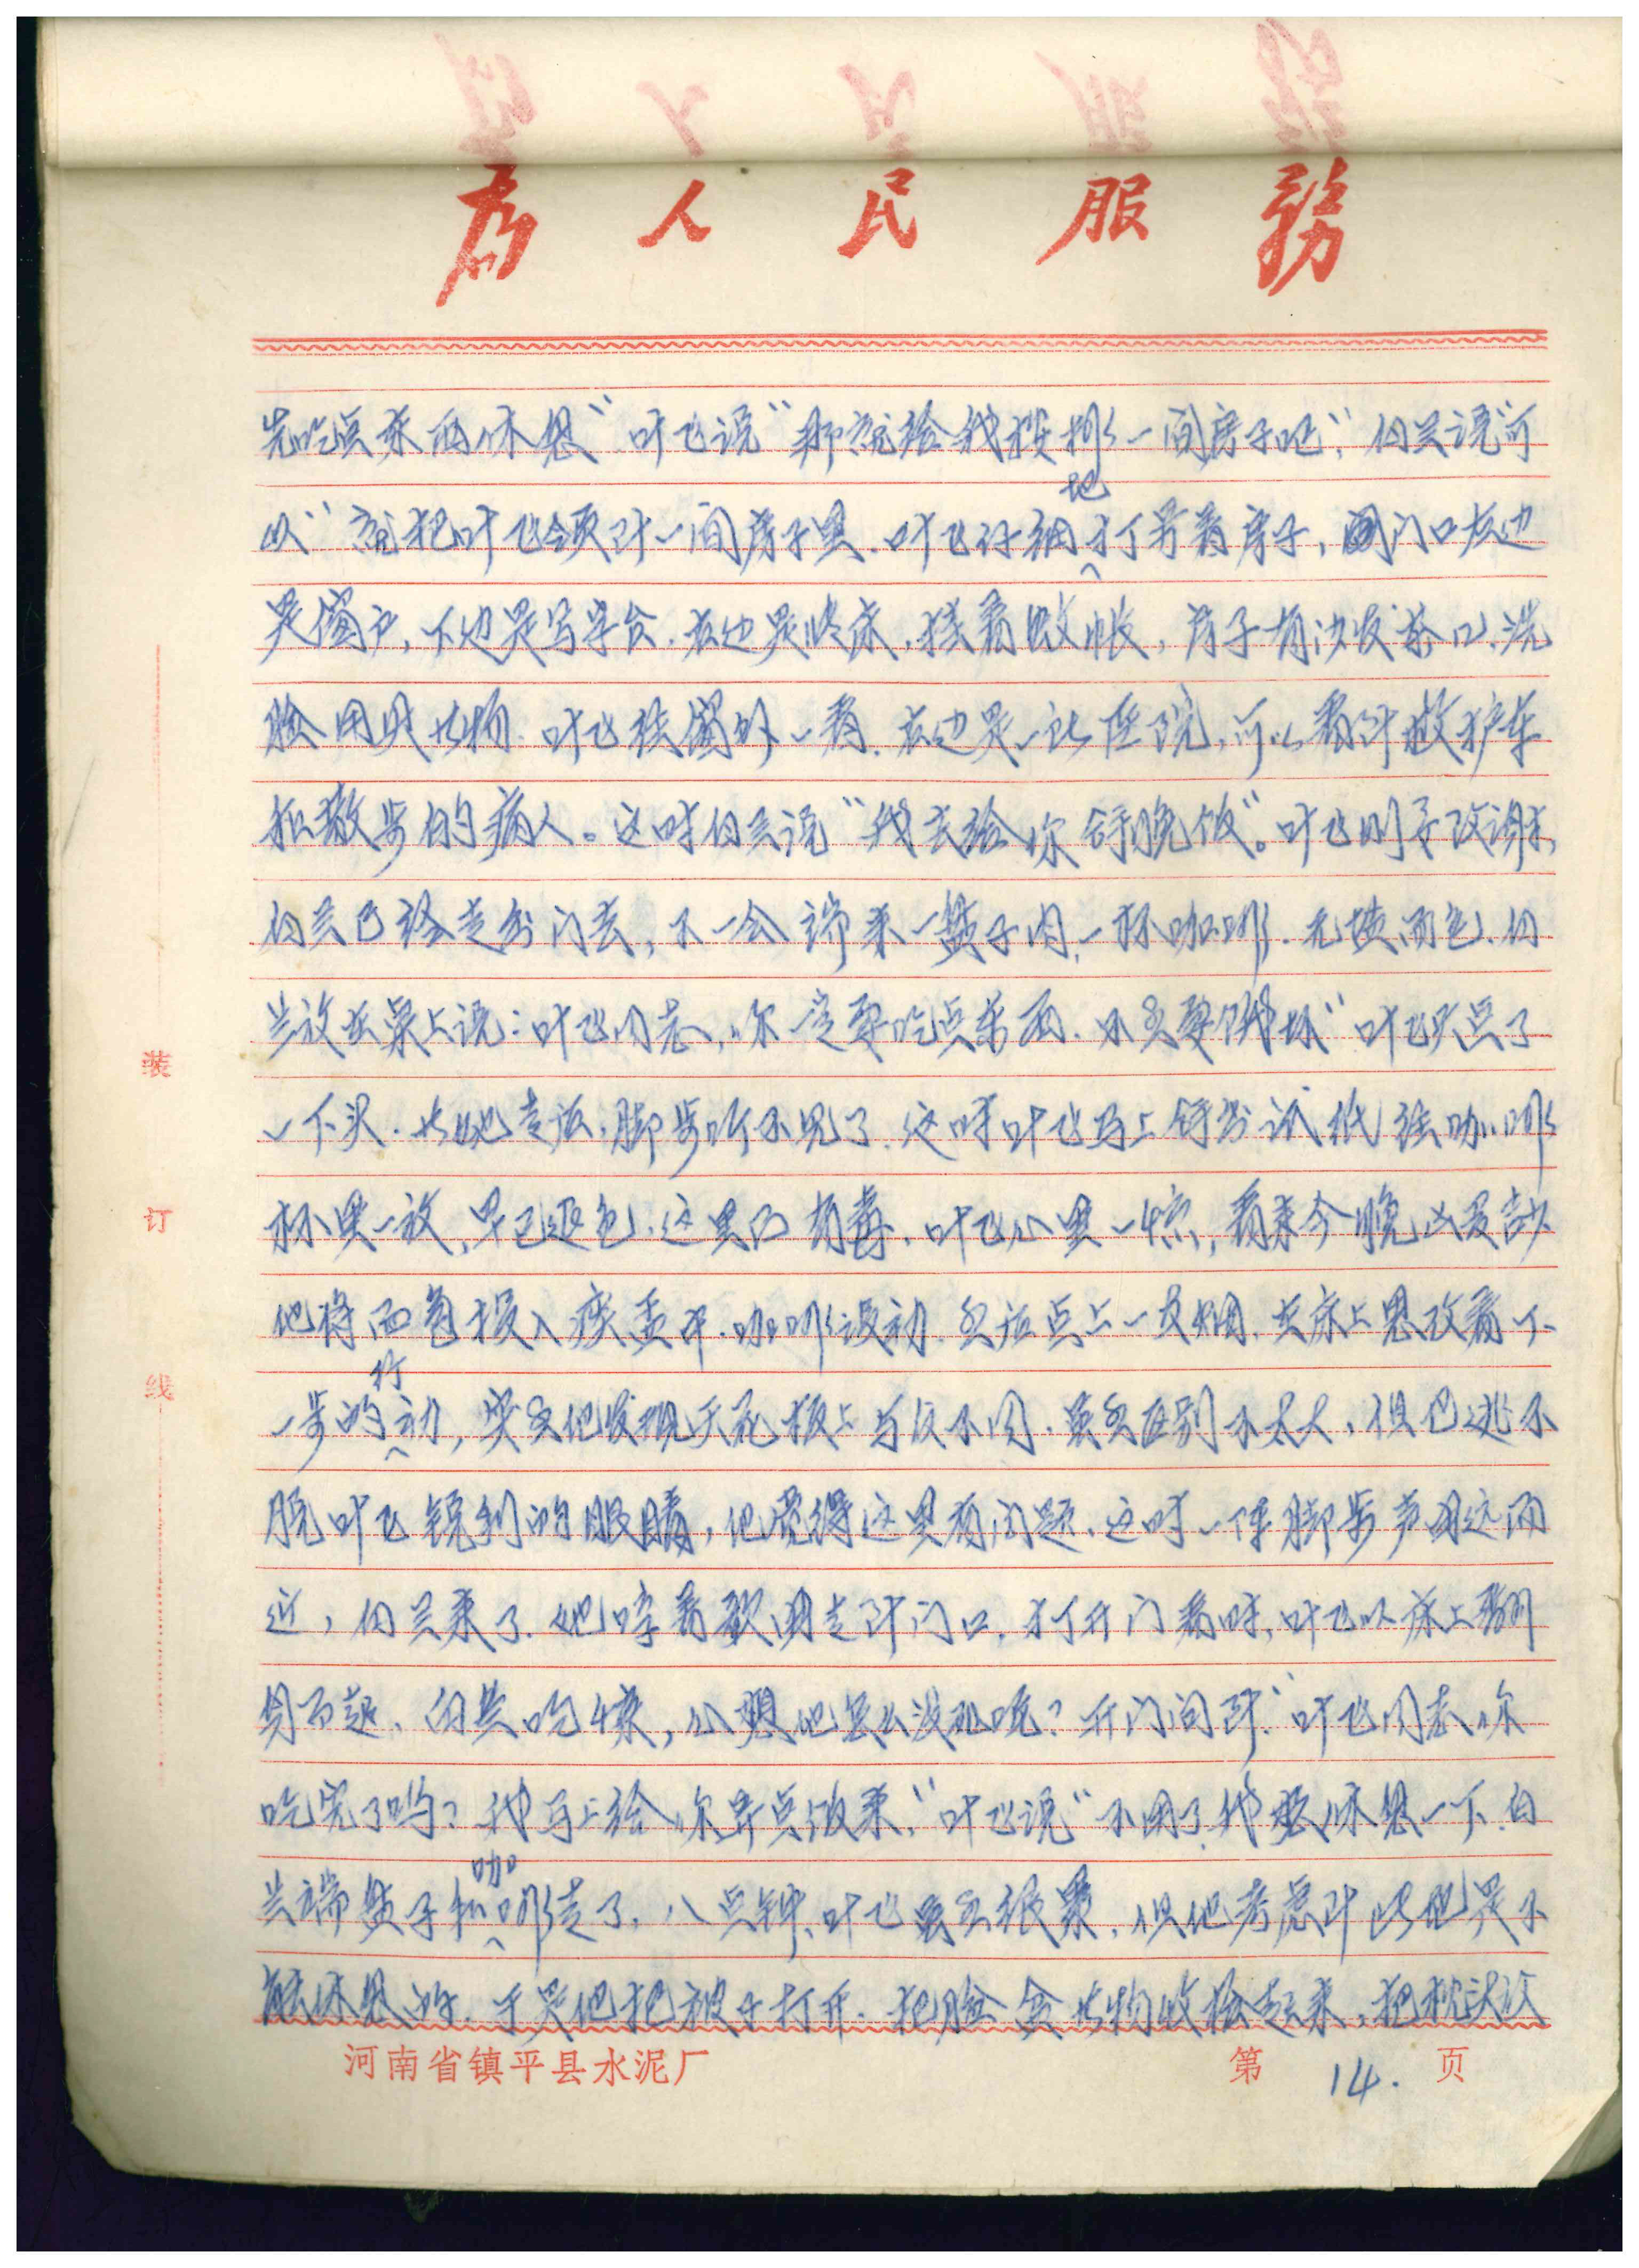 为人民服务
先吃点东西休息“叶飞说“那就给我按排一间房子吧”，白兰说“可
以“就把叶飞领到一间房子里.叶飞仔细地打量着房子，门口左边
是窗户，下边是写字台.右边是床，挂着蚊帐，房子有沙发茶几.洗
脸用具大物.叶飞往窗外一看.右边是一所医院，可以看到救护车
和散步的病人。这时白兰说“我去给你拿晚饭”。叶飞刚要改谢，
白兰已经走出门去，不一会端来一盘子肉，一杯咖啡.无块面包.白
兰放在桌上说：叶飞同志，你一定要吃点东西.不然要饿坏“叶飞只点了
一下头.当她走后.脚步听不见了.这时叶飞马上拿出试纸往咖啡
杯里一放，早已退色.这里面有毒.叶飞心里一惊，看来今晚凶多吉少
他将面包投入痰盂中.咖啡没动.然后点上一支烟.在床上思考着下
一步的行动，突然他发现天花板上与从不同.虽然区别不太大，但已逃不
脱叶飞锐利的眼睛，他觉得这里有问题.这时一阵脚步声由远而
近，白兰来了.她哼着歌曲走到门口.打开门看时，叶飞从床上翻
身而起、白兰吃惊，心想他怎么没死呢？开门问到：“叶飞同志你
吃完了吗？我马上给你弄点饭来，“叶飞说“不用了.我想休息一下.白
兰端盘子和咖啡走了.八点钟、叶飞虽然很累，但他考虑到此地是不
能休息的.于是他把被子打开.把脸盆大物收拾起来，把枕头放
河南省镇平县水泥厂
第 14. 页
装
订
线